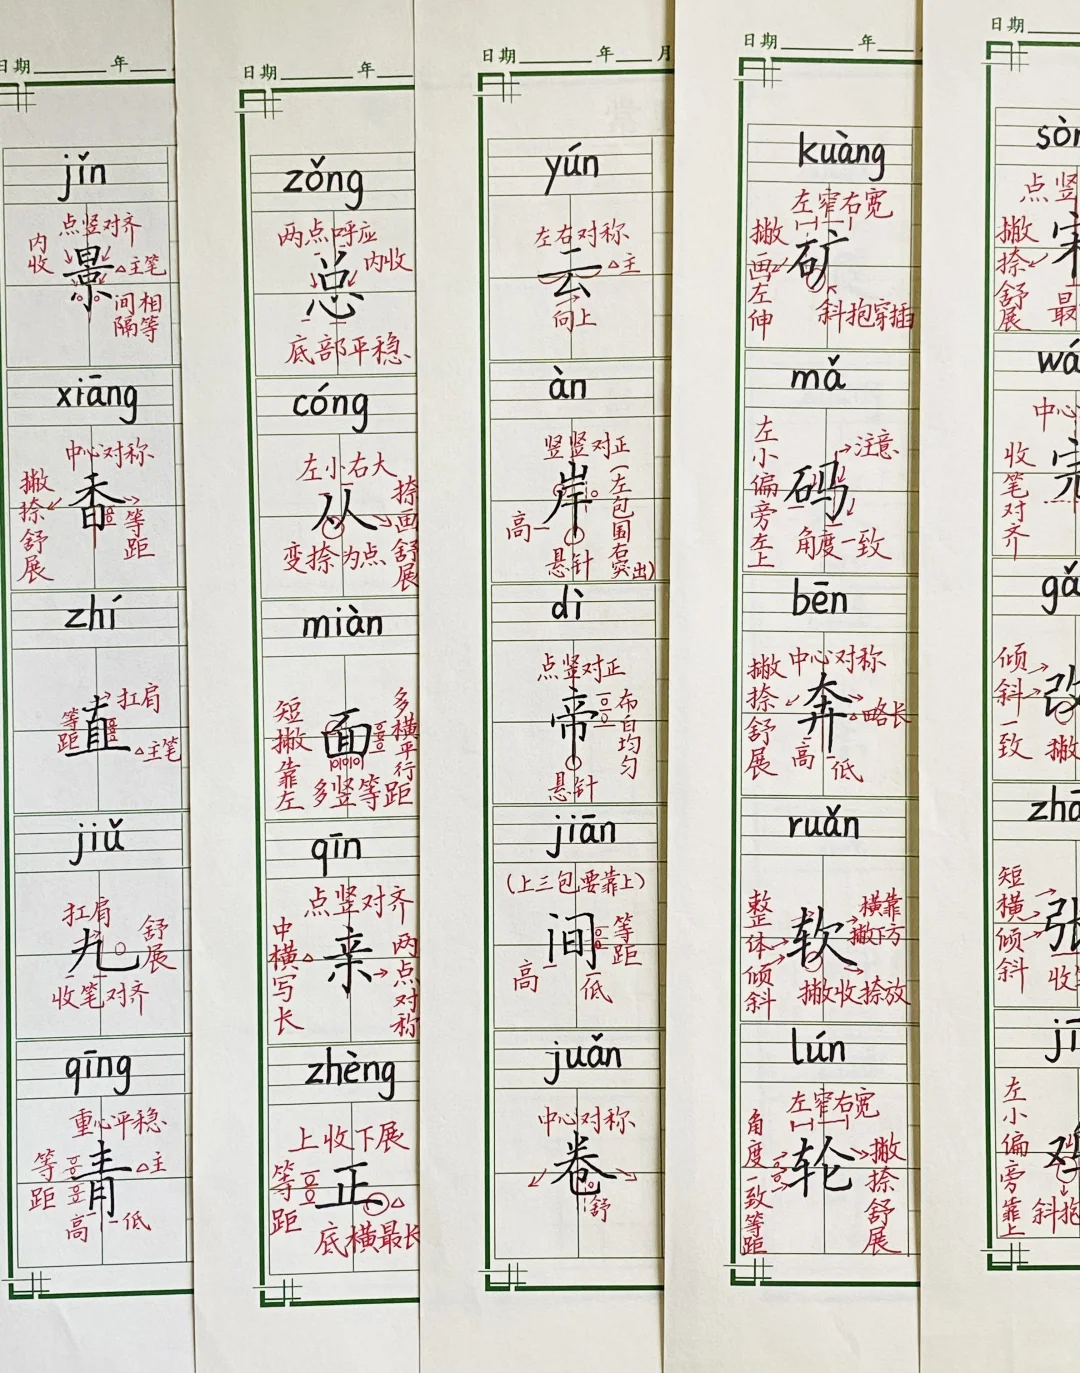 日期 年
jǐn
点竖对齐
内收
景
△主笔
间相
隔等
xiāng
中心对称
撇捺舒展
香
等距
zhí
扛肩
等距
直
△主笔
jiǔ
扛肩
九
舒展
收笔对齐
qīng
重心平稳
等距
青
△主
高 低
日期 年
zǒng
两点呼应
总
内收
底部平稳
cóng
左小右大
从
捺画舒展
变捺为点
miàn
短撇靠左
面
多横平行距
多竖等距
qīn
点竖对齐
中横写长
亲
两点对称
zhèng
上收下展
等距
正
底横最长
日期 年 月
yún
左右对称
云
△主
向上
àn
竖竖对正
岸
(左包围右突出)
高
悬针
dì
点竖对正
帝
布白均匀
悬针
jiān
(上三包要靠上)
间
等距
高 低
juǎn
中心对称
卷
舒
日期 年
kuàng
左窄右宽
撇画左伸
矿
斜抱穿插
mǎ
左小偏旁左上
注意
码
角度一致
bēn
中心对称
撇捺舒展
奔
略长
高 低
ruǎn
整体倾斜
软
横靠
撇下方
撇收捺放
lún
左窄右宽
角度一致等距
轮
撇捺舒展
日期
点竖
撇捺舒展
最
中心
收笔对齐
倾斜一致
改
撇
短横倾斜
张
收
jī
左小偏旁靠上
斜抱